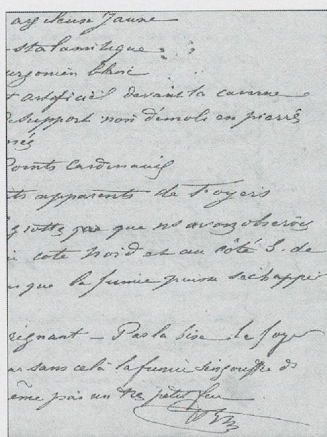 argileuse Jaune
stalamitique
urgonien blanc
t artificiel devant la caverne
support non démoli en pierres
Points Cardinaux
ts apparents de Foyers
grotte que ns avons observés
côté Nord et au côté S. de
que la fumée puisse s'échapper
régnant – Par la bise le foyer
sans cela la fumée s'engouffre ds
ême pas un très petit feu